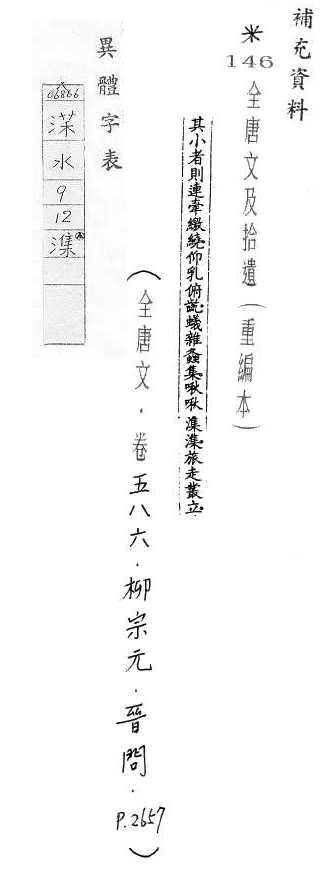 補充資料
＊
146
全唐文及拾遺（重編本）
其小者則連牽縱繞仰乳俯詵蟻雜螽集啾啾潗潗旅走叢立
（全唐文．卷五八六．柳宗元．晉問．P.2657）
異體字表
06866
渫
水
9
12
潗